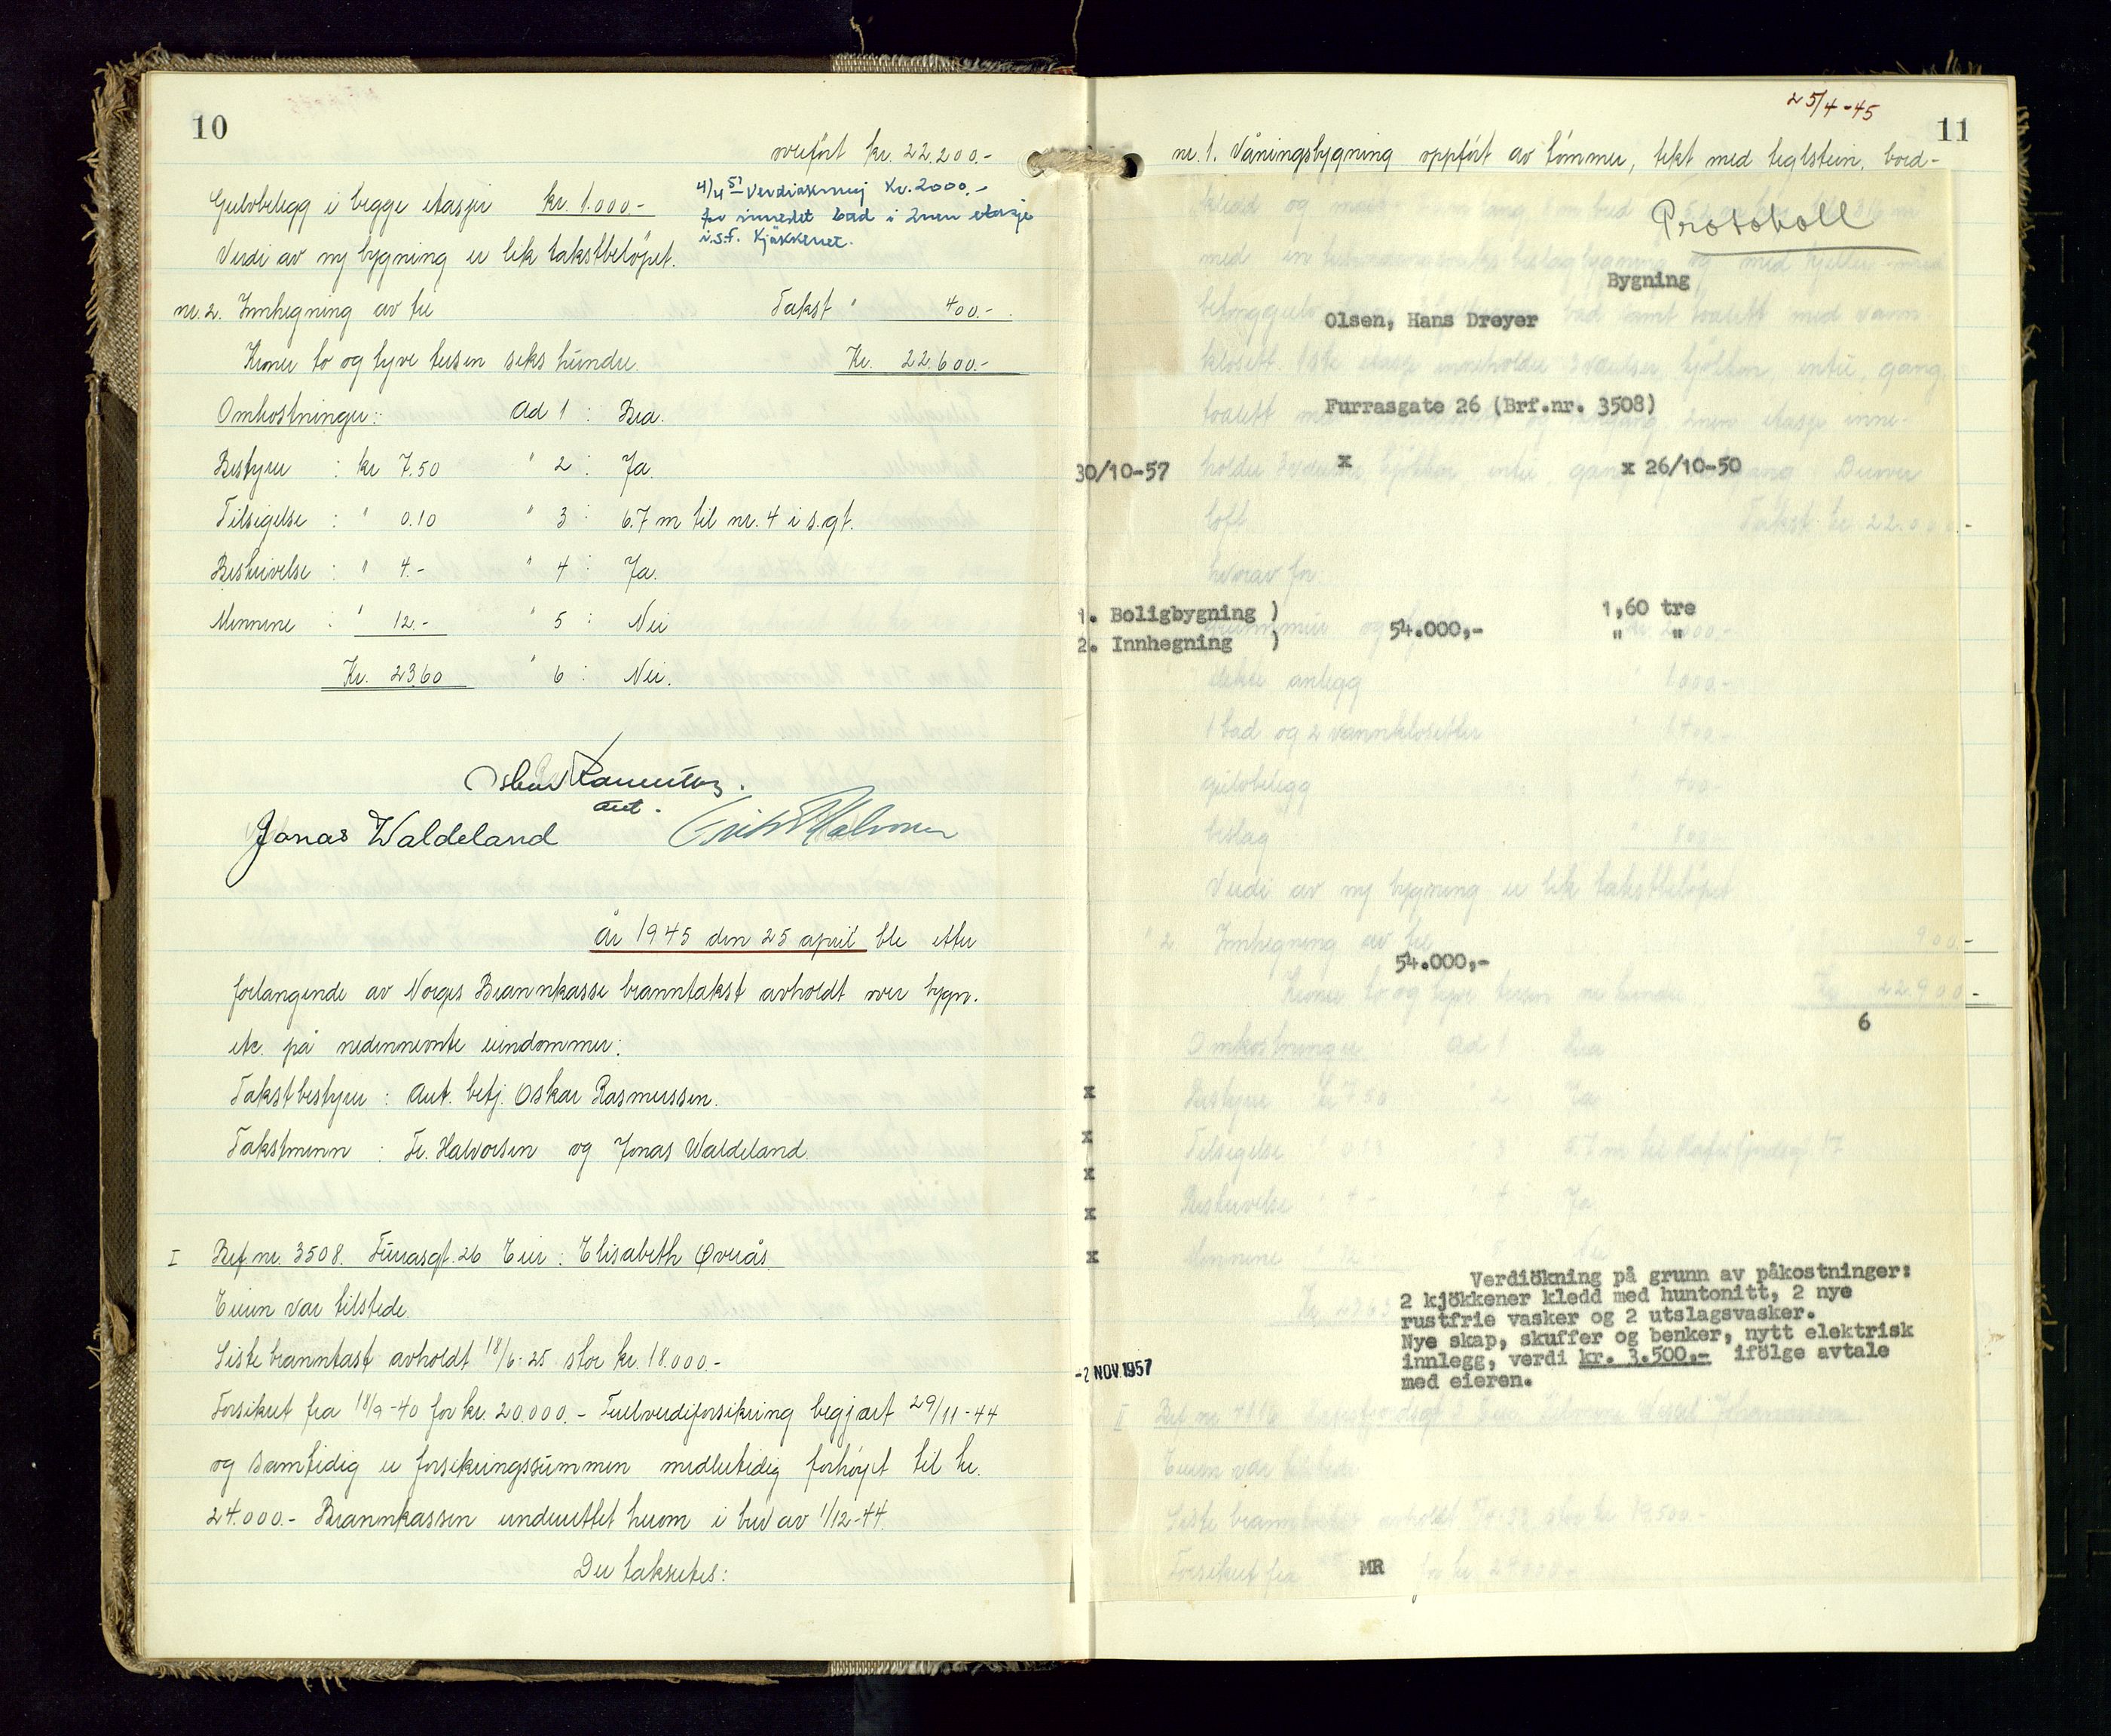 10
overført kr. 22.200.-
Gulvbelegg i begge etasjer kr. 1.000.-
4/4 51 Verdiøkning Kr. 2000.-
for innredet bad i 2nen etasje
i.s.f. Kjøkkenet.
Verdi av ny bygning er lik takstbeløpet.
nr. 2. Innhegning av tre Takst " 400.-
Kroner to og tyve tusen seks hundre Kr. 22.600.-
Omkostninger: Ad 1 : Bra.
Bestyrer : kr 7.50 " 2 : Ja.
Tilsigelse : " 0.10 " 3 : 6.7 m til nr. 4 i s.gt.
Beskrivelse : " 4.- " 4 : Ja.
Mennene : " 12.- " 5 : Nei
Kr. 23.60 " 6 : Nei.
aut.
Jonas Waldeland
År 1945 den 25 april ble etter
forlangende av Norges Brannkasse branntakst avholdt over bygn.
etc. på nedennevnte eiendommer:
Takstbestyrer : Aut. betj. Oskar Rasmussen.
Takstmenn : Fr. Halvorsen og Jonas Waldeland.
I Brf. nr. 3508. Furrasgt. 26 Eier : Elisabeth Øverås.
Eieren var tilstede.
Siste branntast avholdt 18/6-25 stor kr. 18.000.-
Forsikret fra 18/9-40 for kr. 20.000.- Fullverdiforsikring begjært 29/11-44
og samtidig er forsikringssummen midlertidig forhøyet til kr.
24.000.- Brannkassen underrettet herom i brev av 1/12-44.
Der takseres:
25/4-45
11
nr. 1. Våningsbygning oppført av tømmer, tekt med teglstein, bord-
Protokoll
Bygning
Olsen, Hans Dreyer
Furrasgate 26 (Brf.nr. 3508)
30/10-57 x x 26/10-50
Takst kr. 22.000.-
hvorav for:
1. Boligbygning ) 54.000,- 1,60 tre
2. Innhegning ) " "
dekte anlegg " 1.000.-
1 bad og 2 vannklosetter " 1.400.-
gulvbelegg " 400.-
beslag " 800.-
Verdi av ny bygning er lik takstbeløpet
" 2 Innhegning av tre 900.-
54.000,-
Kroner to og tyve tusen ni hundre Kr. 22.900.-
6
Omkostninger Ad 1 Bra
x Bestyrer kr 7.50 " 2 Ja
x Tilsigelse
x
x Beskrivelse " 4.- " 4 Ja
x Mennene 12.- Nei
Verdiökning på grunn av påkostninger:
2 kjökkener kledd med huntonitt, 2 nye
rustfrie vasker og 2 utslagsvasker.
Nye skap, skuffer og benker, nytt elektrisk
innlegg, verdi kr. 3.500,- ifölge avtale
med eieren.
-2 NOV. 1957
II Brf. nr.
Eieren var tilstede
Siste branntakst avholdt
Forsikret fra
MR